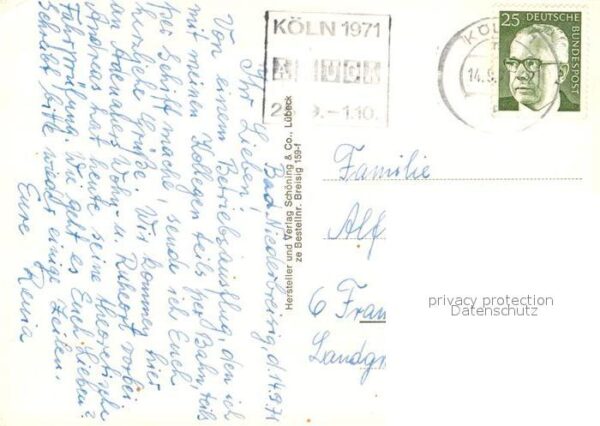 Bad Niederbreisig, d. 14.9.71
Ihr Lieben!
Von einem Betriebsausflug, den ich
mit meinen Kollegen teils per Bahn, teils
per Schiff mache, sende ich Euch
herzliche Grüße. Wir kommen hier
an Adenauers Wohn- u. Ruheort vorbei.
Andreas hat heute seine theoretische
Fahrprüfung. Wie geht es Euch Lieben?
Schreibt bitte wieder einige Zeilen.
Eure
Hersteller und Verlag Schöning & Co., Lübeck
ze Bestellnr. Breisig 159-f
KÖLN 1971
9.-1.10.
KÖL
14.9.
25 DEUTSCHE
BUNDESPOST
Familie
Alf
6 Fran
Landgr
privacy protection
Datenschutz